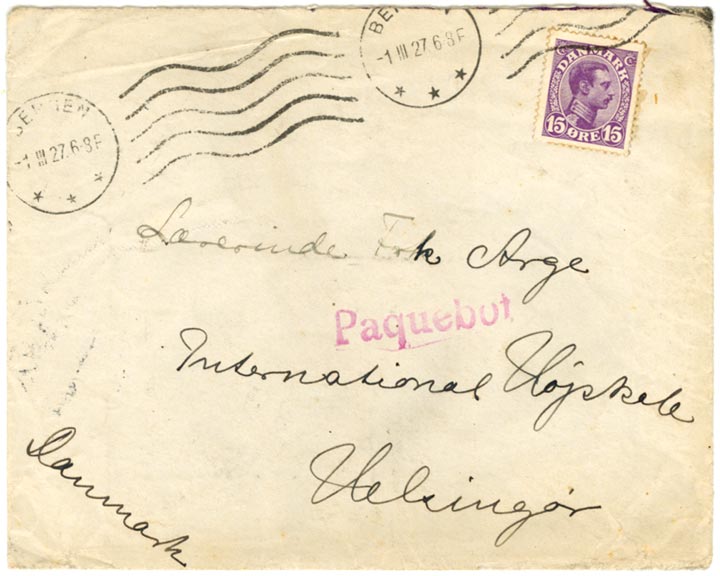 BERGEN
-1 III 27. 6-8 F
BE
-1 III 27. 6-8 F
DANMARK
15 ØRE 15
Lærerinde Frk Arge
Paquebot
International Højskole
Helsingør
Danmark